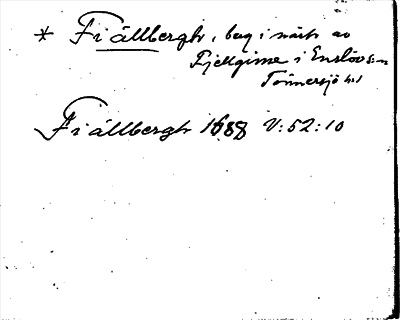 * Fiällbergh, beg. i närh. av
Fjellgime i Enslöv sn
Tönnersjö hd
Fiällbergh 1688 V:52:10